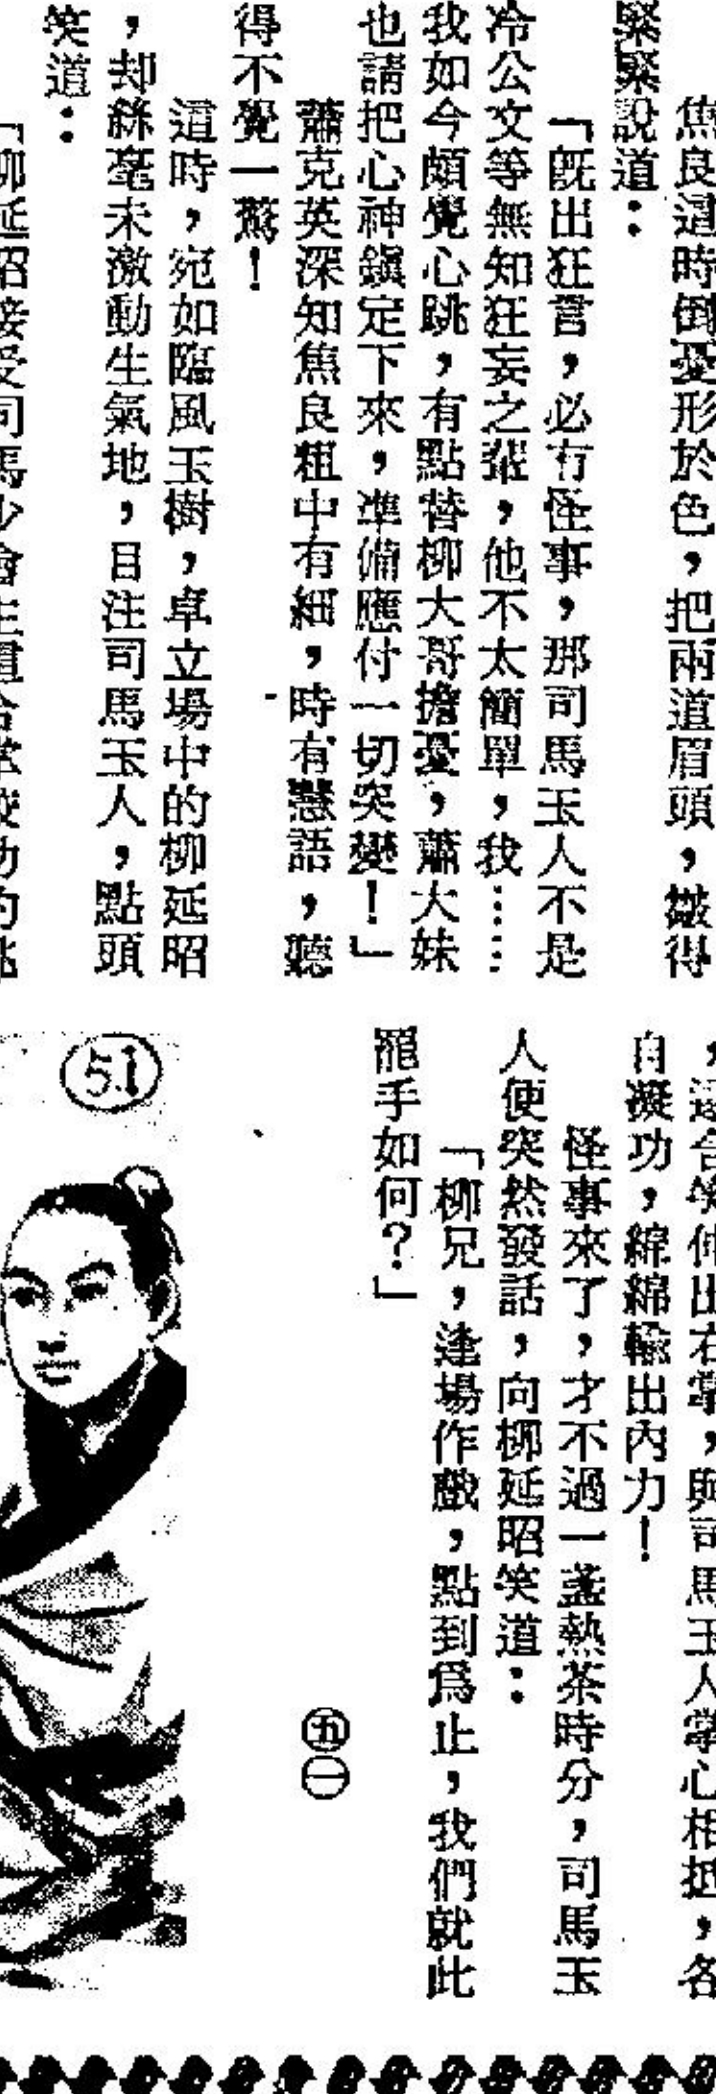 焦良這時倒憂形於色，把兩道眉頭，皺得
緊緊說道：
「旣出狂言，必有怪事，那司馬玉人不是
冷公文等無知狂妄之輩，他不太簡單，我……
我如今頗覺心跳，有點替柳大哥擔憂，蕭大妹
也請把心神鎭定下來，準備應付一切突變！」
蕭克英深知焦良粗中有細，時有慧語，聽
得不覺一驚！
這時，宛如臨風玉樹，卓立場中的柳延昭
，却絲毫未激動生氣地，目注司馬玉人，點頭
笑道：
「柳延昭接受司馬少會主
，遂含笑伸出右掌，與司馬玉人掌心相抵，各
自凝功，綿綿輸出內力！
怪事來了，才不過一盞熱茶時分，司馬玉
人便突然發話，向柳延昭笑道：
「柳兄，逢場作戲，點到爲止，我們就此
罷手如何？」
㊄㊀
51